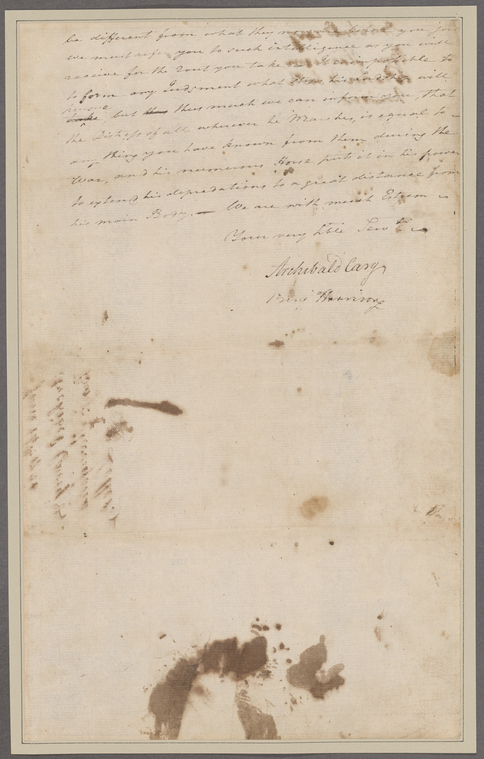 be different from what they now are, before you join
we must refer you to such intelligence as you will
receive for the rout you take. It is impossible to
to form any Judgment what Move his Lordship will
make but this much we can inform you, that
the Distress of all wherever he Marches, is equal to
any thing you have known from them during the
War, and his numerous Horse puts it in his power
to extend his depredations to a great distance from
his main Body. — We are with much Esteem
Your very Hble Servts
Archibald Cary
Benj Harrison